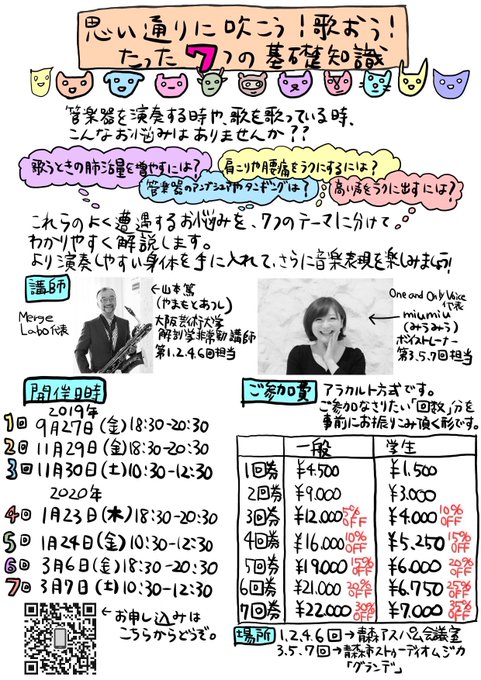 思い通りに吹こう!歌おう!
たった7つの基礎知識
管楽器を演奏する時や、歌を歌っている時、
こんなお悩みはありませんか??
歌うときの肺活量を増やすには?
肩こりや腰痛をラクにするには?
管楽器のアンブシュアやタンギングは?
高い声をラクに出すには?
これらのよく遭遇するお悩みを、7つのテーマに分けて
わかりやすく解説します。
より演奏しやすい身体を手に入れて、さらに音楽表現を楽しみましょう!
講師
Merge
Labo代表
←山本篤
(やまもとあつし)
大阪芸術大学
解剖学非常勤講師
第1.2.4.6回担当
One and Only Voice
代表
←miumiu
(みうみう)
ボイストレーナー
第3.5.7回担当
開催日時
2019年
1回 9月27日(金)18:30-20:30
2回 11月29日(金)18:30-20:30
3回 11月30日(土)10:30-12:30
2020年
4回 1月23日(木)18:30-20:30
5回 1月24日(金)10:30-12:30
6回 3月6日(金)18:30-20:30
7回 3月7日(土)10:30-12:30
←お申し込みは
こちらからどうぞ。
ご参加費
アラカルト方式です。
ご参加なさりたい「回数」分を
事前にお振りこみ頂く形です。
一般 学生
1回券 ¥4.500 ¥1.500
2回券 ¥9.000 ¥3.000
3回券 ¥12.000 5%OFF ¥4.000 10%OFF
4回券 ¥16.000 10%OFF ¥5.250 15%OFF
5回券 ¥19.000 15%OFF ¥6.000 20%OFF
6回券 ¥21.000 20%OFF ¥6.750 25%OFF
7回券 ¥22.000 30%OFF ¥7.000 35%OFF
場所
1.2.4.6回→青森アスパム会議室
3.5.7回→青森市ストゥーディオムジカ
「グランデ」